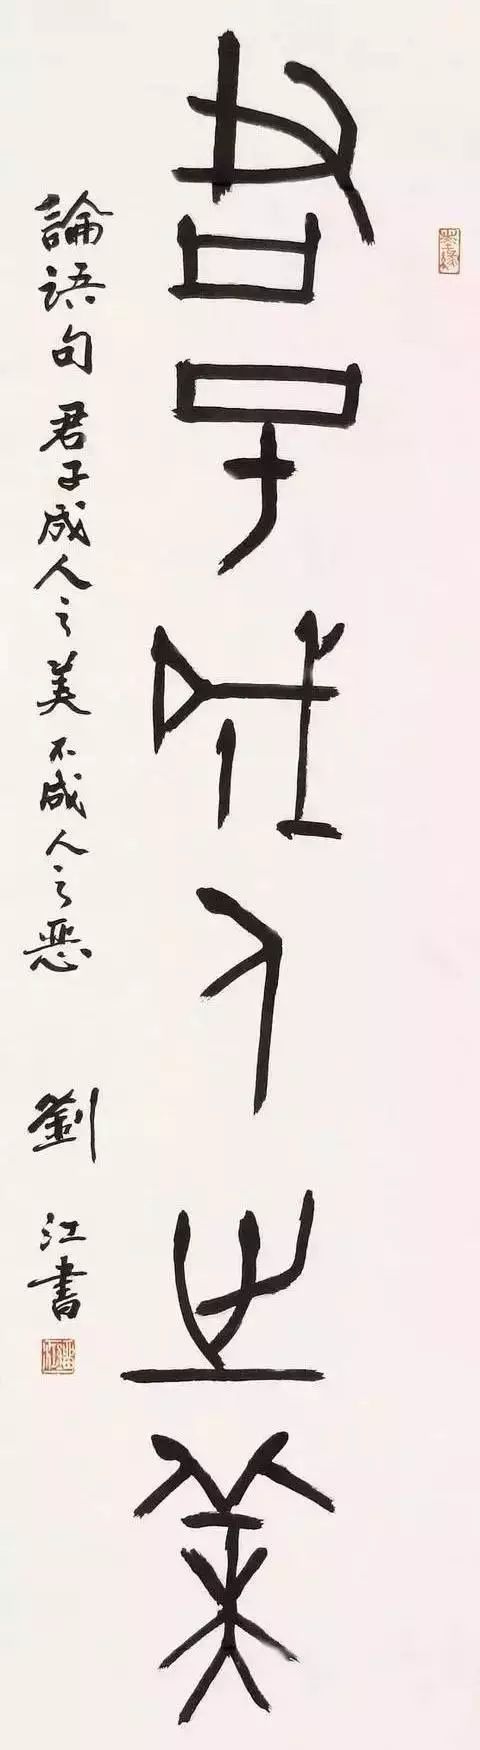 君子成人之美
論語句 君子成人之美不成人之惡 劉江書